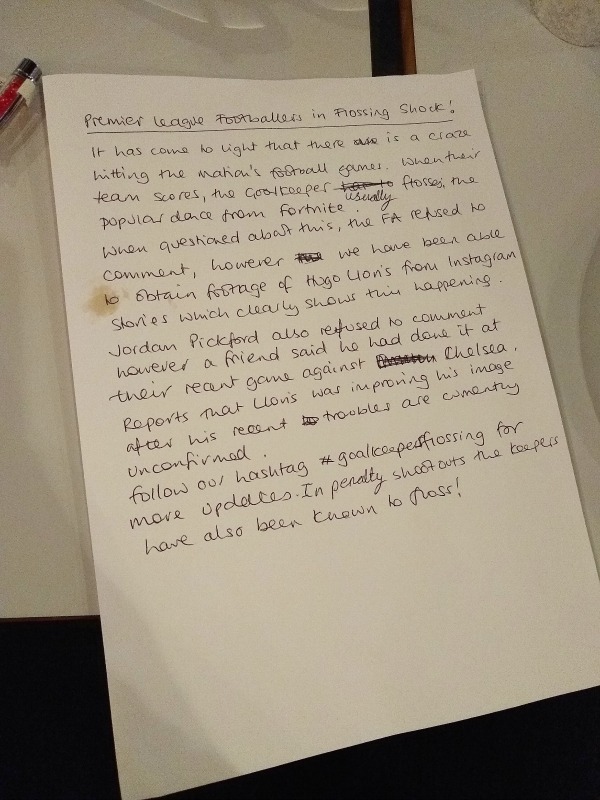 Premier League Footballers in Flossing Shock!
It has come to light that there is a craze
hitting the nation's football games. When their
team scores, the Goalkeeper flosses, the
usually
popular dance from Fortnite.
When questioned about this, the FA refused to
comment, however we have been able
to obtain footage of Hugo Lloris from Instagram
stories which clearly shows this happening.
Jordan Pickford also refused to comment
however a friend said he had done it at
their recent game against Chelsea.
Reports that Lloris was improving his image
after his recent troubles are currently
unconfirmed.
follow our hashtag #goalkeepersflossing for
more updates. In penalty shootouts the keepers
have also been known to floss!